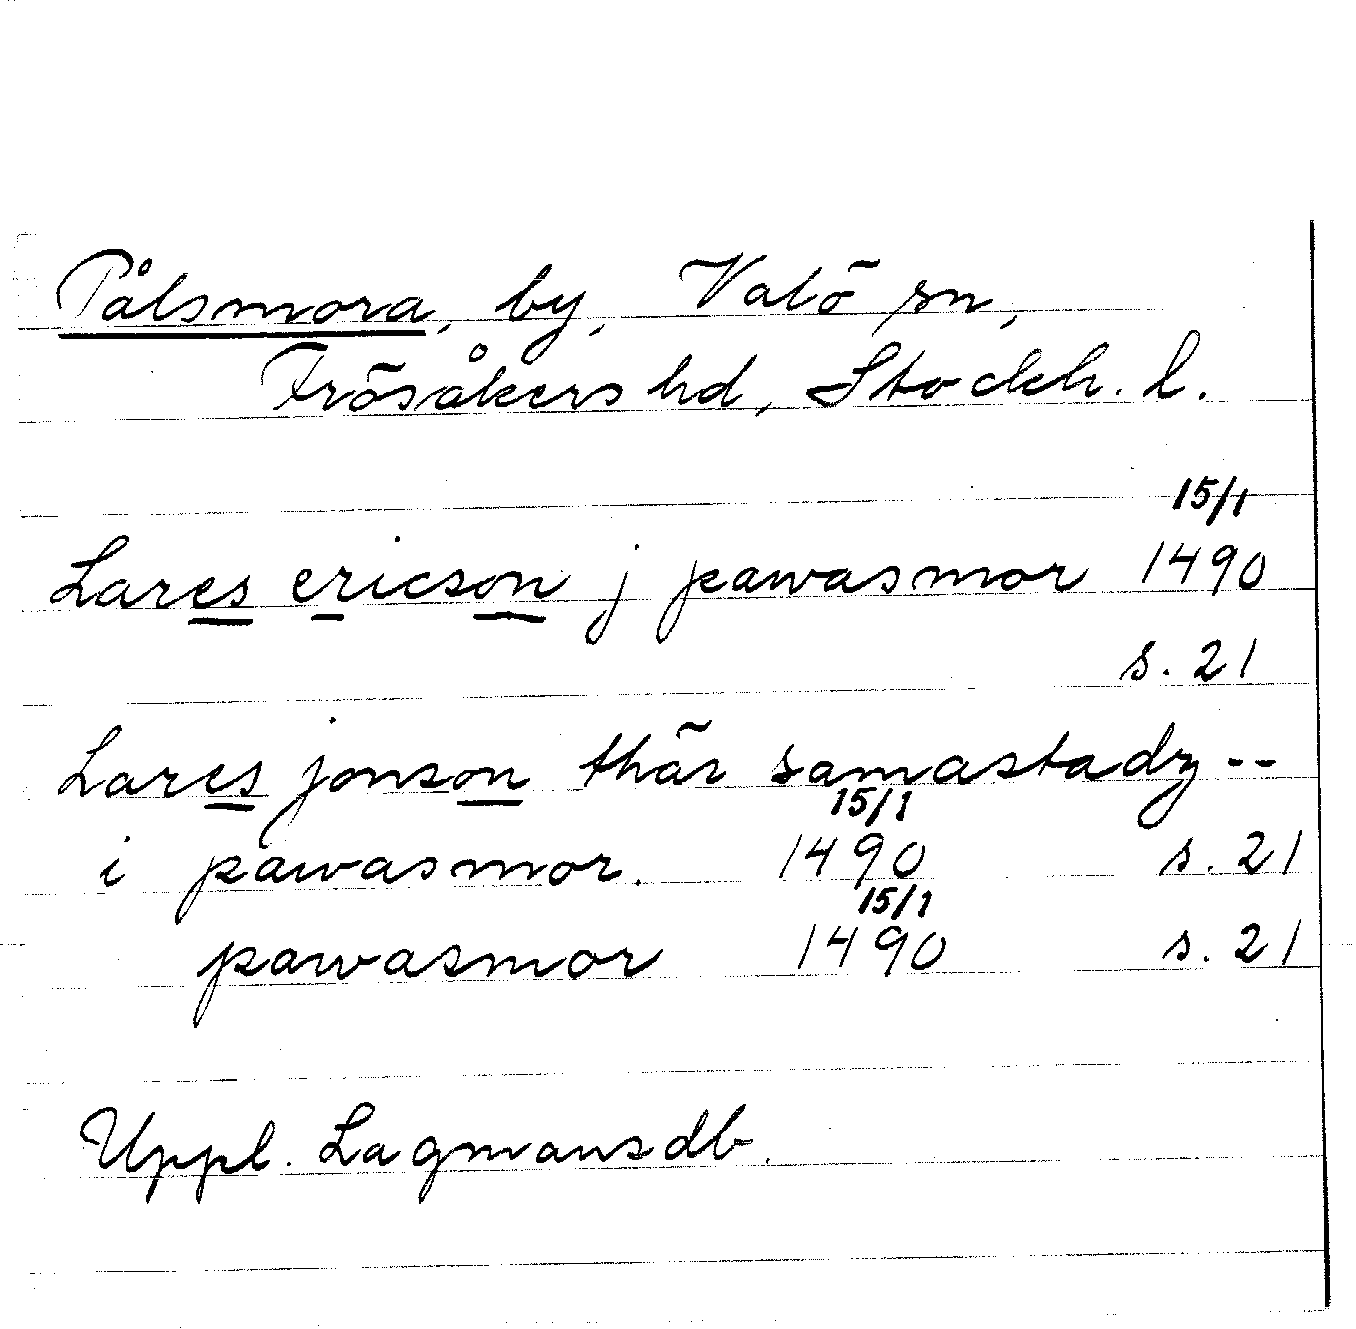 Pålsmora, by, Valö sn,
Frösåkers hd, Stockh. l.
15/1
Lares ericson j pawasmor 1490
s. 21
Lares jonson thär samastadz --
15/1
i pawasmor. 1490 s. 21
15/1
pawasmor 1490 s. 21
Uppl. Lagmansdb.